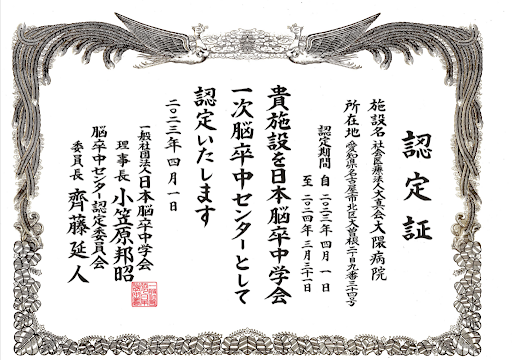 認定証
施設名 社会医療法人大真会大隈病院
所在地 愛知県名古屋市北区大曽根二丁目九番三十四号
認定期間 自 二〇二三年 四月 一日
至 二〇二四年 三月三十一日
貴施設を日本脳卒中学会
一次脳卒中センターとして
認定いたします
二〇二三年 四月 一日
一般社団法人日本脳卒中学会
理事長 小笠原邦昭
脳卒中センター認定委員会
委員長 齊藤延人